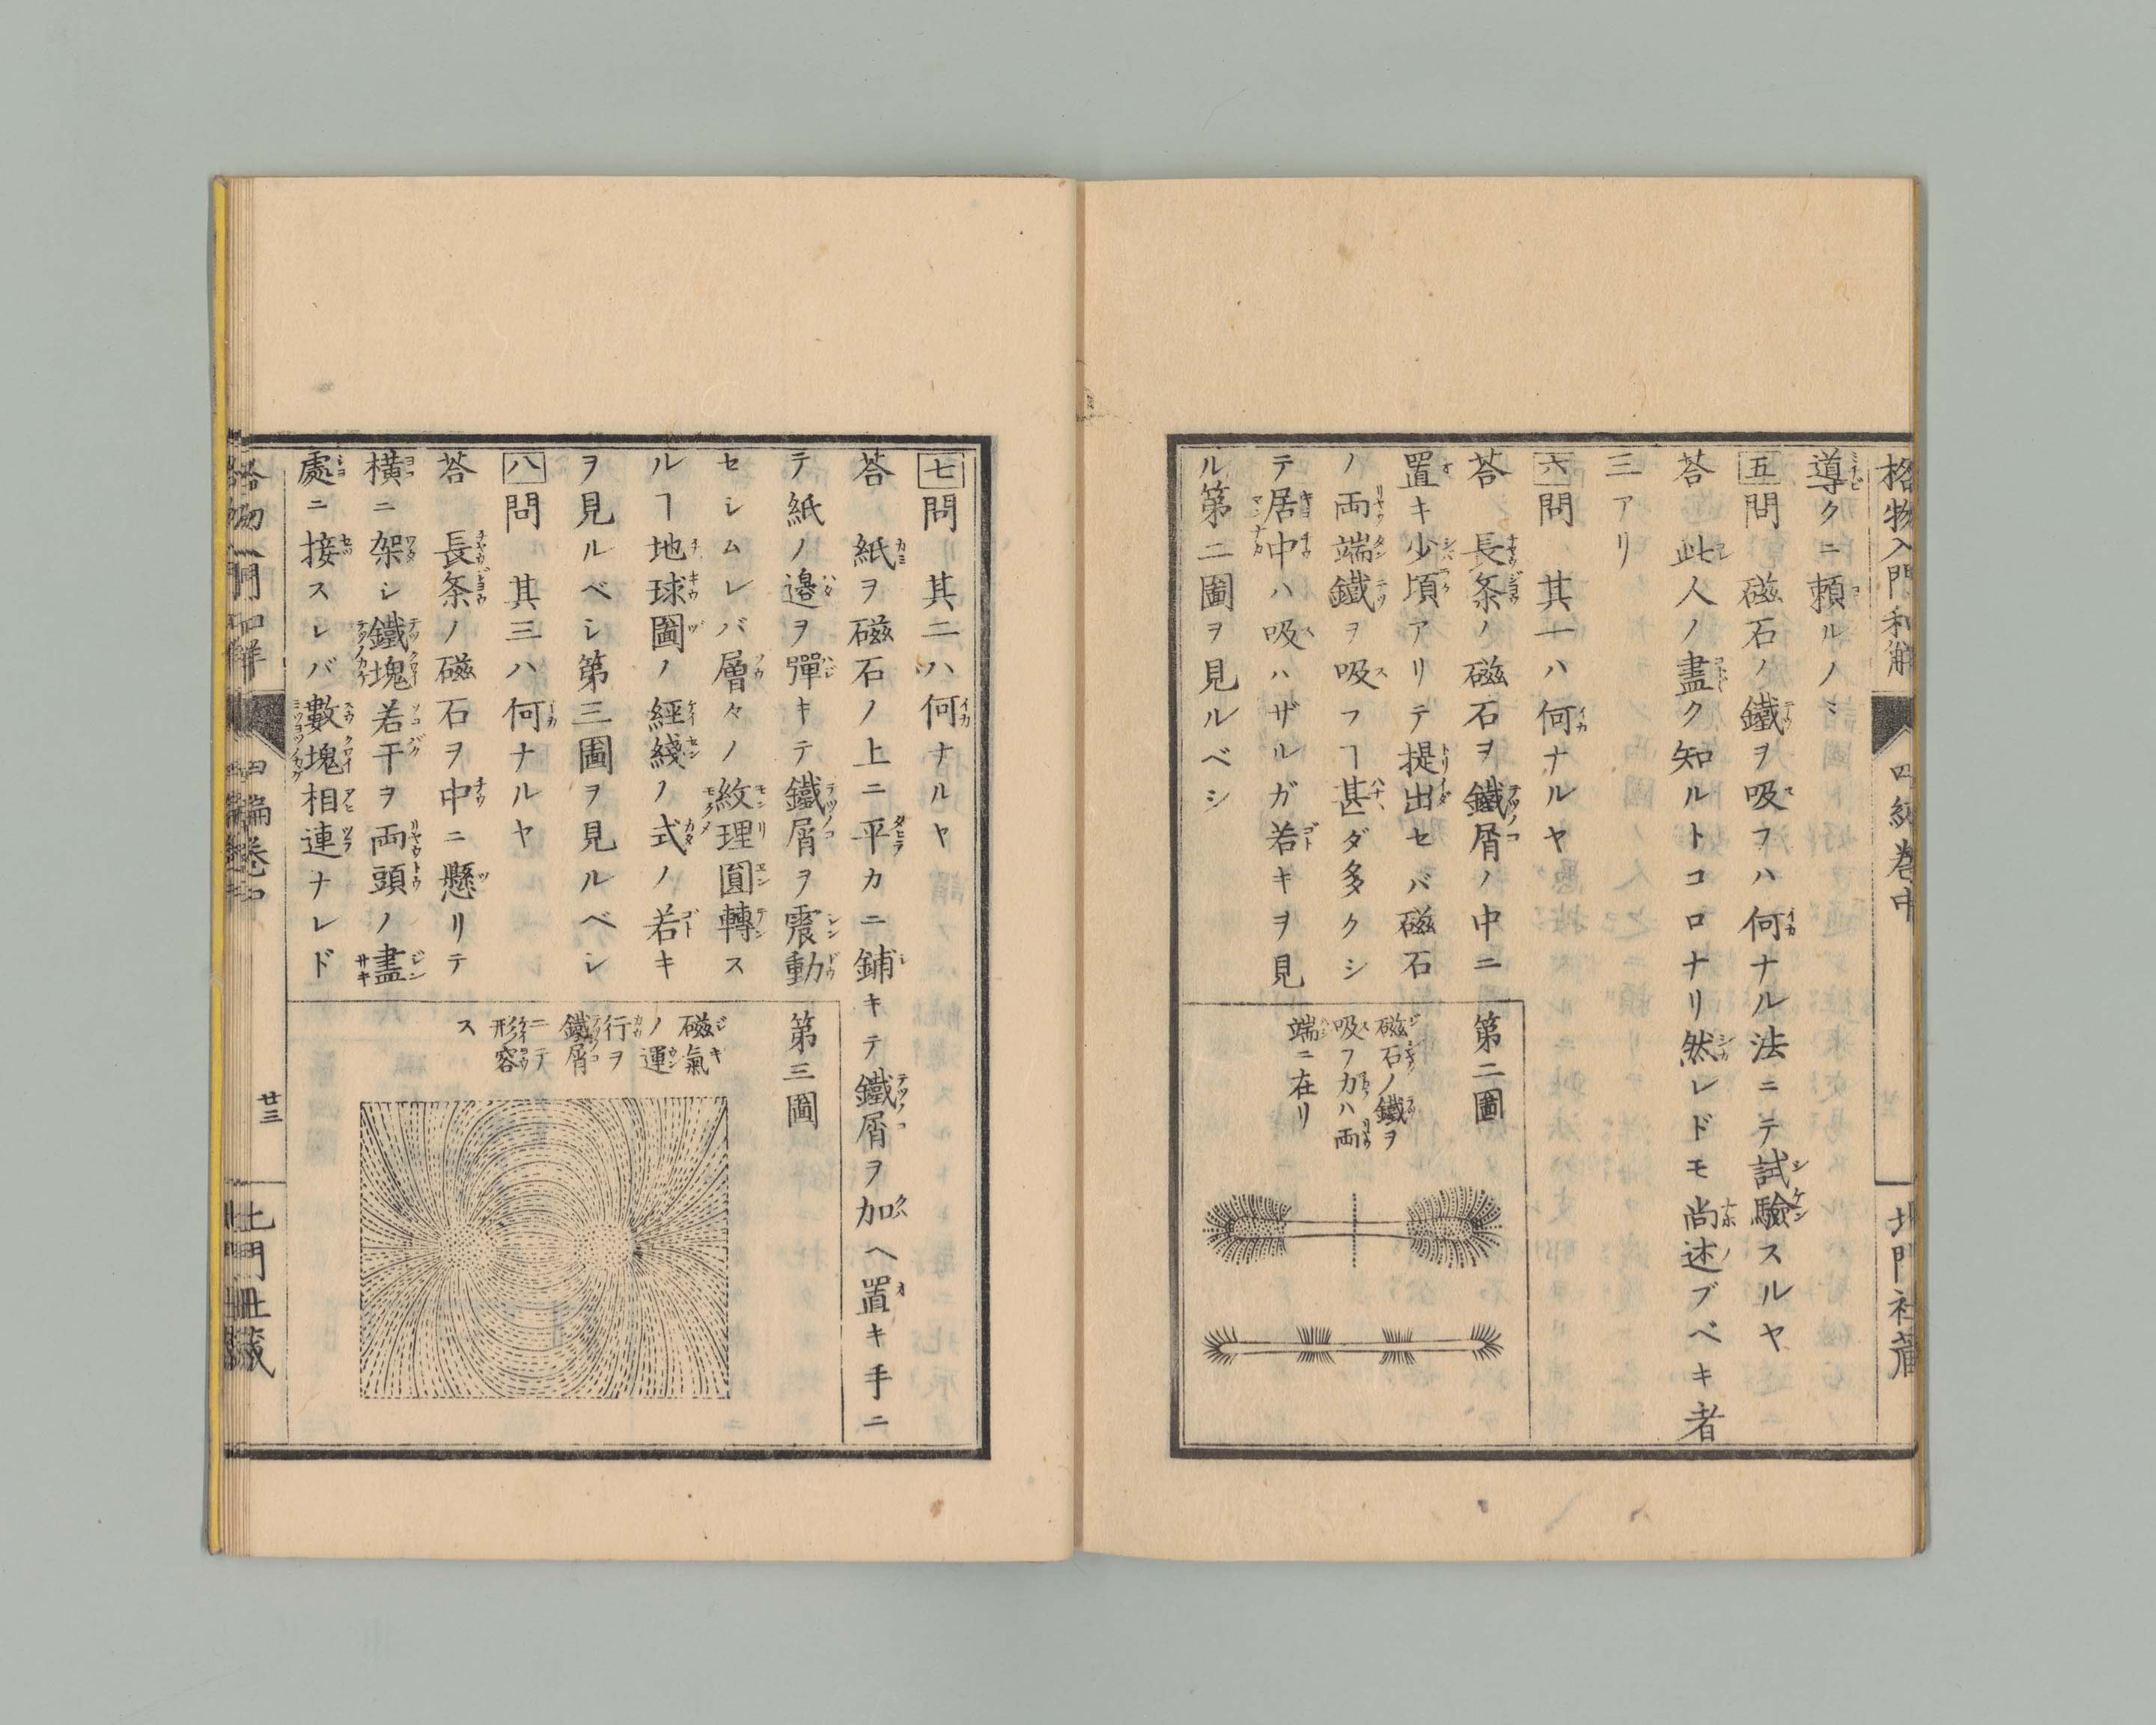 格物入門和解 四編卷中 北門社藏
導クニ頼ルノミ
五問 磁石ノ鐵ヲ吸フハ何ナル法ニテ試驗スルヤ
荅 此人ノ盡ク知ルトコロナリ然レドモ尚述ブベキ者
三アリ
六問 其一ハ何ナルヤ
荅 長条ノ磁石ヲ鐵屑ノ中ニ
置キ少頃アリテ提出セバ磁石
ノ両端鐵ヲ吸フヿ甚ダ多クシ
テ居中ハ吸ハザルガ若キヲ見
ル第二圖ヲ見ルベシ
第二圖
磁石ノ鐵ヲ
吸フ力ハ両
端ニ在リ
七問 其二ハ何ナルヤ
荅 紙ヲ磁石ノ上ニ平カニ鋪キテ鐵屑ヲ加ヘ置キ手ニ
テ紙ノ邉ヲ彈キテ鐵屑ヲ震動
セシムレバ層々ノ紋理圓轉ス
ルヿ地球圖ノ経綫ノ式ノ若キ
ヲ見ルベシ第三圖ヲ見ルベシ
八問 其三ハ何ナルヤ
荅 長条ノ磁石ヲ中ニ懸リテ
横ニ架シ鐵塊若干ヲ両頭ノ盡
處ニ接スレバ數塊相連ナレド
第三圖
磁氣
ノ運
行ヲ
鐵屑
ニテ
形容
ス
格物入門和解 四編卷中 廿三 北門社藏